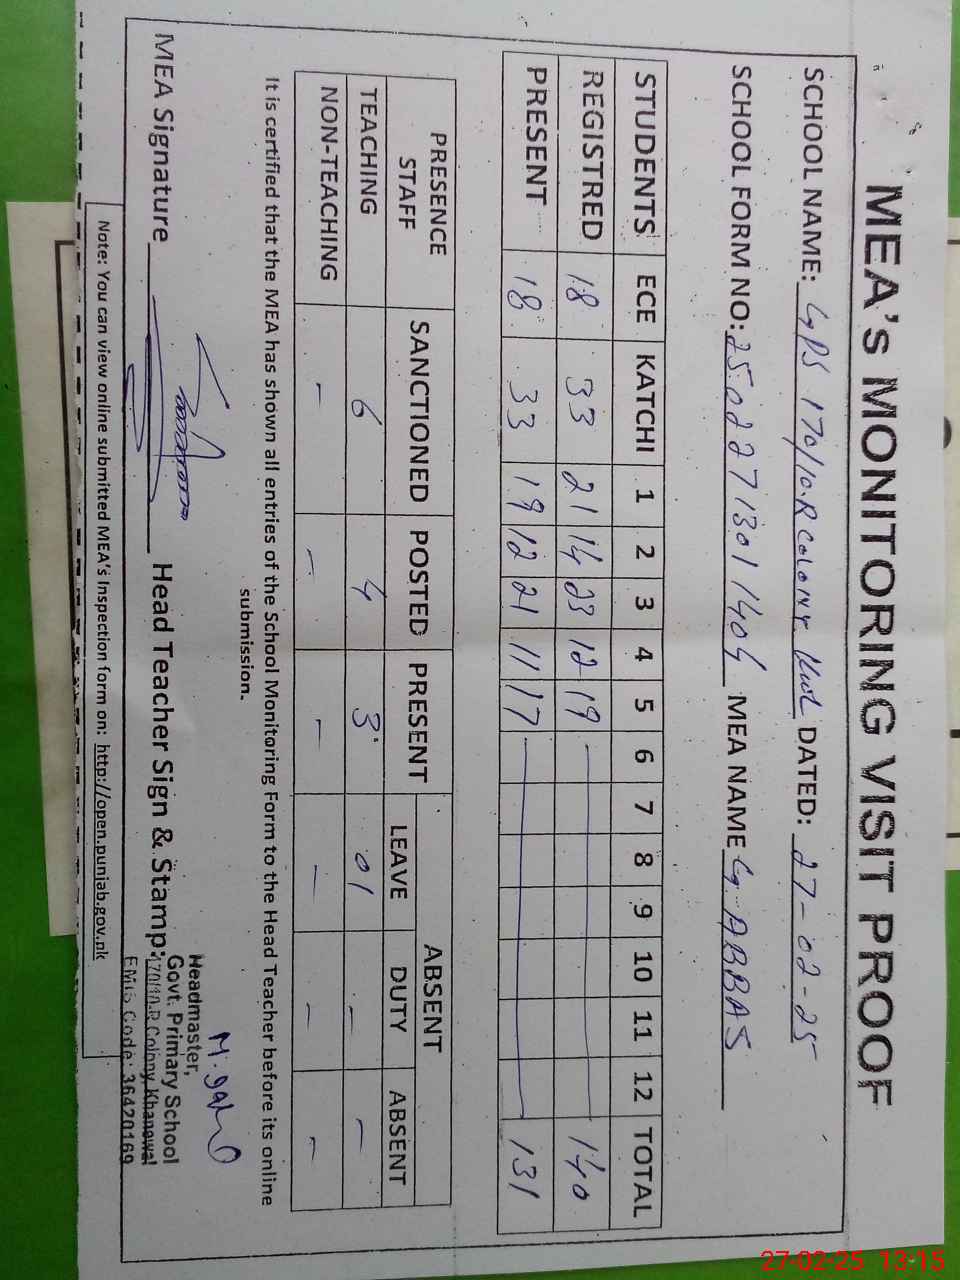 MEA's MONITORING VISIT PROOF
SCHOOL NAME: GPS 170/10.R Colony Kwl DATED: 27-02-25
SCHOOL FORM NO: 250227130 1404 MEA NAME G. ABBAS
STUDENTS ECE KATCHI 1 2 3 4 5 6 7 8 9 10 11 12 TOTAL
REGISTRED 18 33 21 14 23 12 19 140
PRESENT 18 33 19 12 21 11 17 131
PRESENCE STAFF SANCTIONED POSTED PRESENT ABSENT
LEAVE DUTY ABSENT
TEACHING 6 4 3 01 - -
NON-TEACHING - - - - - -
It is certified that the MEA has shown all entries of the School Monitoring Form to the Head Teacher before its online
submission.
MEA Signature Head Teacher Sign & Stamp:
Headmaster,
Govt. Primary School
170/10.R Colony Khanewal
EMIS Code: 36420169
Note: You can view online submitted MEA's Inspection form on: http://open.punjab.gov.pk
27-02-25 13:15